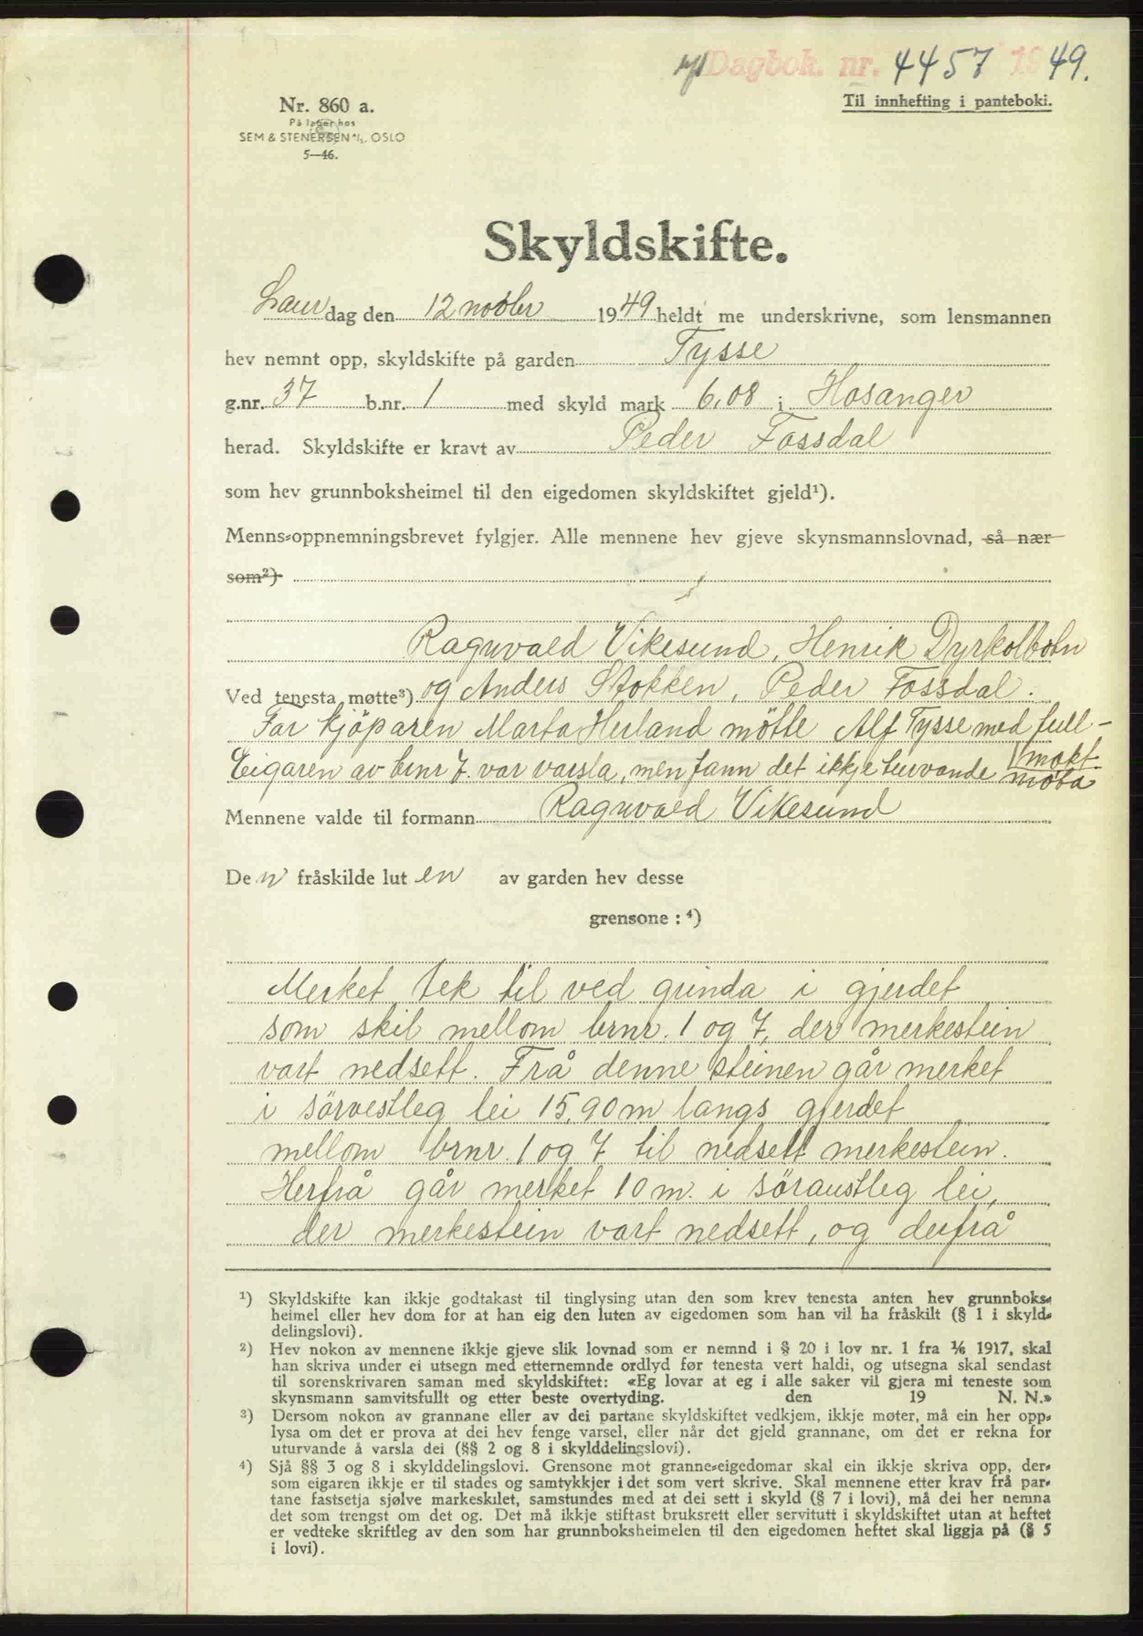 Dagbok. nr. 4457 1949.
Til innhefting i panteboki.
Nr. 860 a.
På lager hos
SEM & STENERSEN A/S. OSLO
5—46.
Skyldskifte.
Laur dag den 12 novbr 1949 heldt me underskrivne, som lensmannen
hev nemnt opp, skyldskifte på garden Tysse
g.nr. 37 b.nr. 1 med skyld mark 6,08 i Hosanger
herad. Skyldskifte er kravt av Peder Fossdal
som hev grunnboksheimel til den eigedomen skyldskiftet gjeld¹).
Menns-oppnemningsbrevet fylgjer. Alle mennene hev gjeve skynsmannslovnad, så nær
som²)
Ragnvald Vikesund, Henrik Dyrkolbotn
Ved tenesta møtte³) og Anders Stokken, Peder Fossdal.
For kjöparen Marta Herland mötte Alf Tysse med full-
makt
Eigaren av brnr 7. var varsla, men fann det ikkje turvande möta
Mennene valde til formann Ragnvald Vikesund
De n fråskilde lut en av garden hev desse
grensone : ⁴)
Merket tek til ved grinda i gjerdet
som skil mellom brnr. 1 og 7, der merkestein
vart nedsett. Frå denne steinen går merket
i sörvestleg lei 15,90 m langs gjerdet
mellom brnr. 1 og 7 til nedsett merkestein.
Herfrå går merket 10 m. i söraustleg lei,
der merkestein vart nedsett, og derfrå
¹) Skyldskifte kan ikkje godtakast til tinglysing utan den som krev tenesta anten hev grunnboks-
heimel eller hev dom for at han eig den luten av eigedomen som han vil ha fråskilt (§ 1 i skyld-
delingslovi).
²) Hev nokon av mennene ikkje gjeve slik lovnad som er nemnd i § 20 i lov nr. 1 fra 1/6 1917, skal
han skriva under ei utsegn med etternemnde ordlyd før tenesta vert haldi, og utsegna skal sendast
til sorenskrivaren saman med skyldskiftet: «Eg lovar at eg i alle saker vil gjera mi teneste som
skynsmann samvitsfullt og etter beste overtyding. den 19 N. N.»
³) Dersom nokon av grannane eller av dei partane skyldskiftet vedkjem, ikkje møter, må ein her opp-
lysa om det er prova at dei hev fenge varsel, eller når det gjeld grannane, om det er rekna for
uturvande å varsla dei (§§ 2 og 8 i skylddelingslovi).
⁴) Sjå §§ 3 og 8 i skylddelingslovi. Grensone mot granne-eigedomar skal ein ikkje skriva opp, der-
som eigaren ikkje er til stades og samtykkjer i det som vert skrive. Skal mennene etter krav frå par-
tane fastsetja sjølve markeskilet, samstundes med at dei sett i skyld (§ 7 i lovi), må dei her nemna
det som trengst om det og. Det må ikkje stiftast bruksrett eller servitutt i skyldskiftet utan at heftet
er vedteke skriftleg av den som har grunnboksheimelen til den eigedomen heftet skal liggja på (§ 5
i lovi).